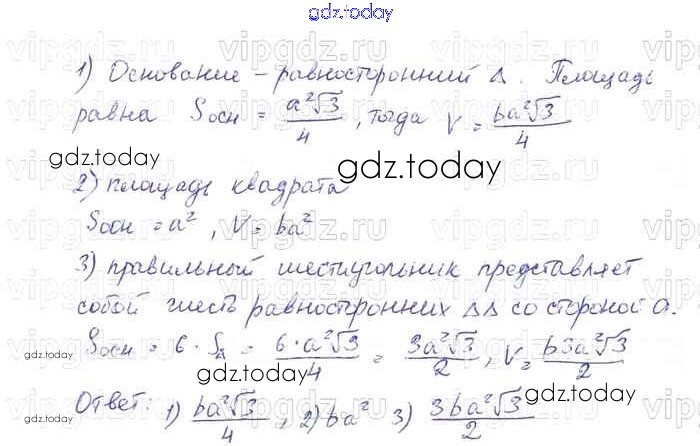 gdz.today
1) Основание – равносторонний Δ. Площадь
равна Sосн = a²√3/4, тогда V = ba²√3/4
gdz.today
gdz.today
2) площадь квадрата
Sосн = a², V = ba²
gdz.today
3) правильный шестиугольник представляет
собой шесть равносторонних ΔΔ со стороной a.
Sосн = 6 · SΔ = 6·a²√3/4 = 3a²√3/2, V = b3a²√3/2
gdz.today
gdz.today
gdz.today
Ответ: 1) ba²√3/4, 2) ba² 3) 3ba²√3/2
gdz.today
vipgdz.ru